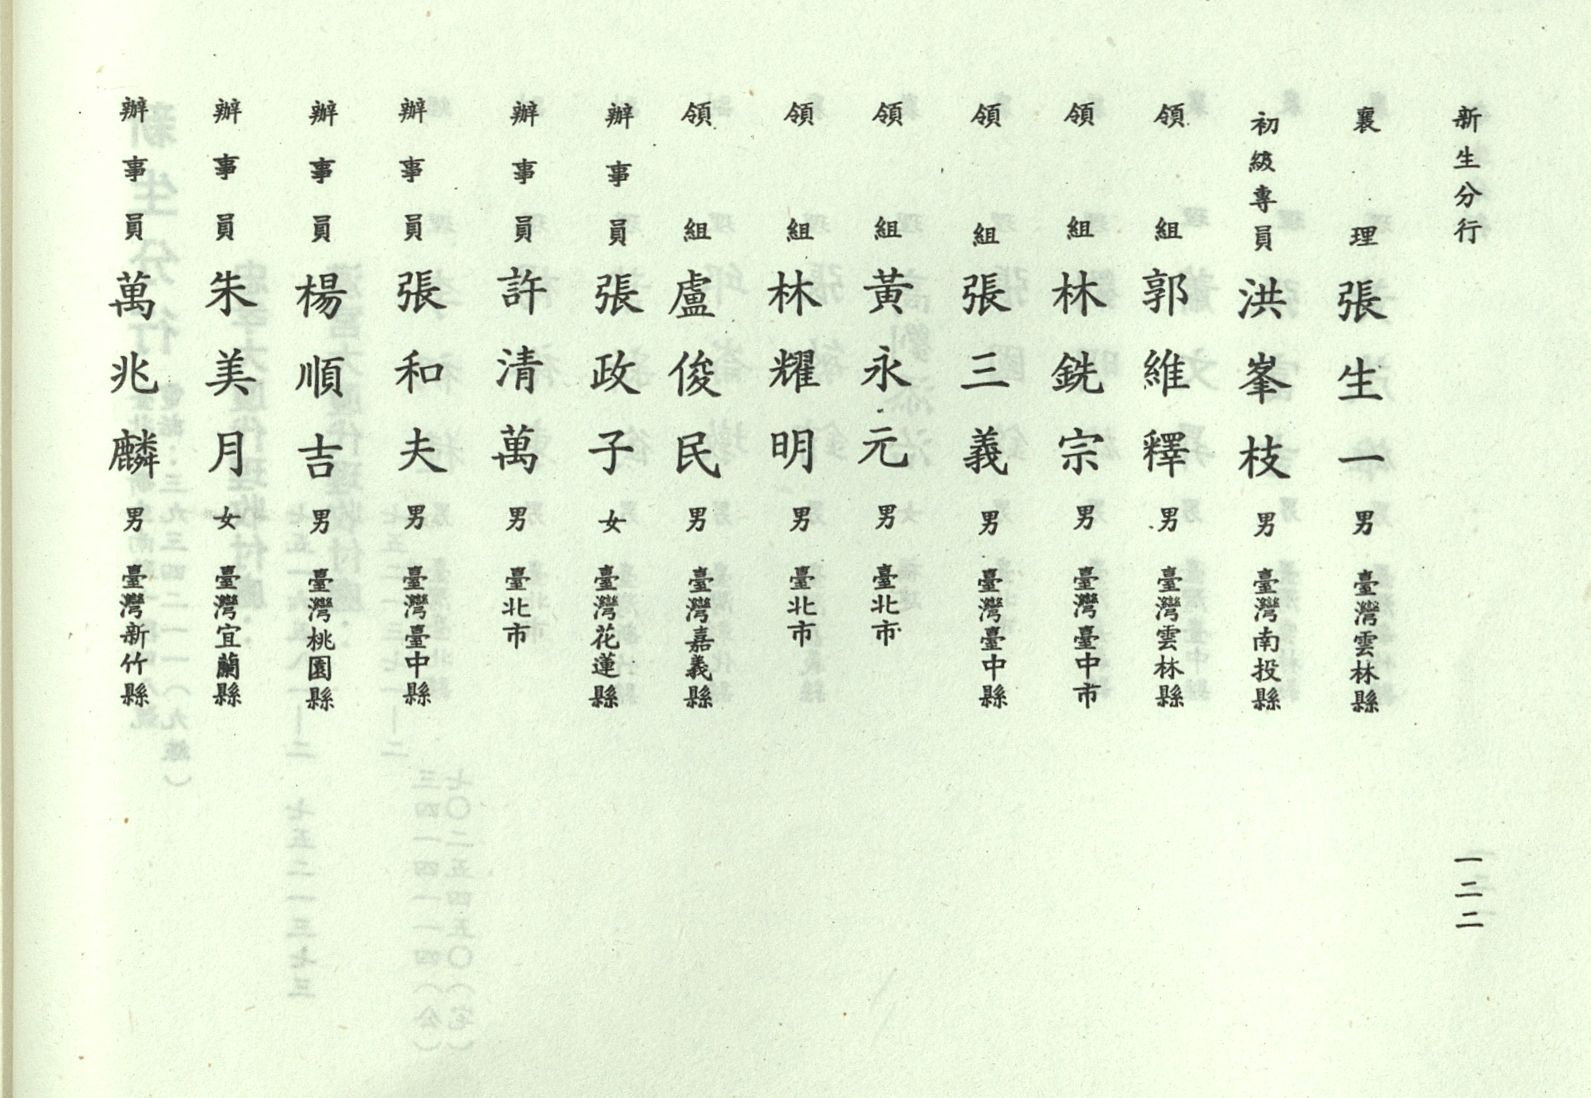 新生分行
襄理 張生一 男 臺灣雲林縣
初級專員 洪峯枝 男 臺灣南投縣
領組 郭維釋 男 臺灣雲林縣
領組 林銑宗 男 臺灣臺中市
領組 張三義 男 臺灣臺中縣
領組 黃永元 男 臺北市
領組 林耀明 男 臺北市
領組 盧俊民 男 臺灣嘉義縣
辦事員 張政子 女 臺灣花蓮縣
辦事員 許清萬 男 臺北市
辦事員 張和夫 男 臺灣臺中縣
辦事員 楊順吉 男 臺灣桃園縣
辦事員 朱美月 女 臺灣宜蘭縣
辦事員 萬兆麟 男 臺灣新竹縣
一二二